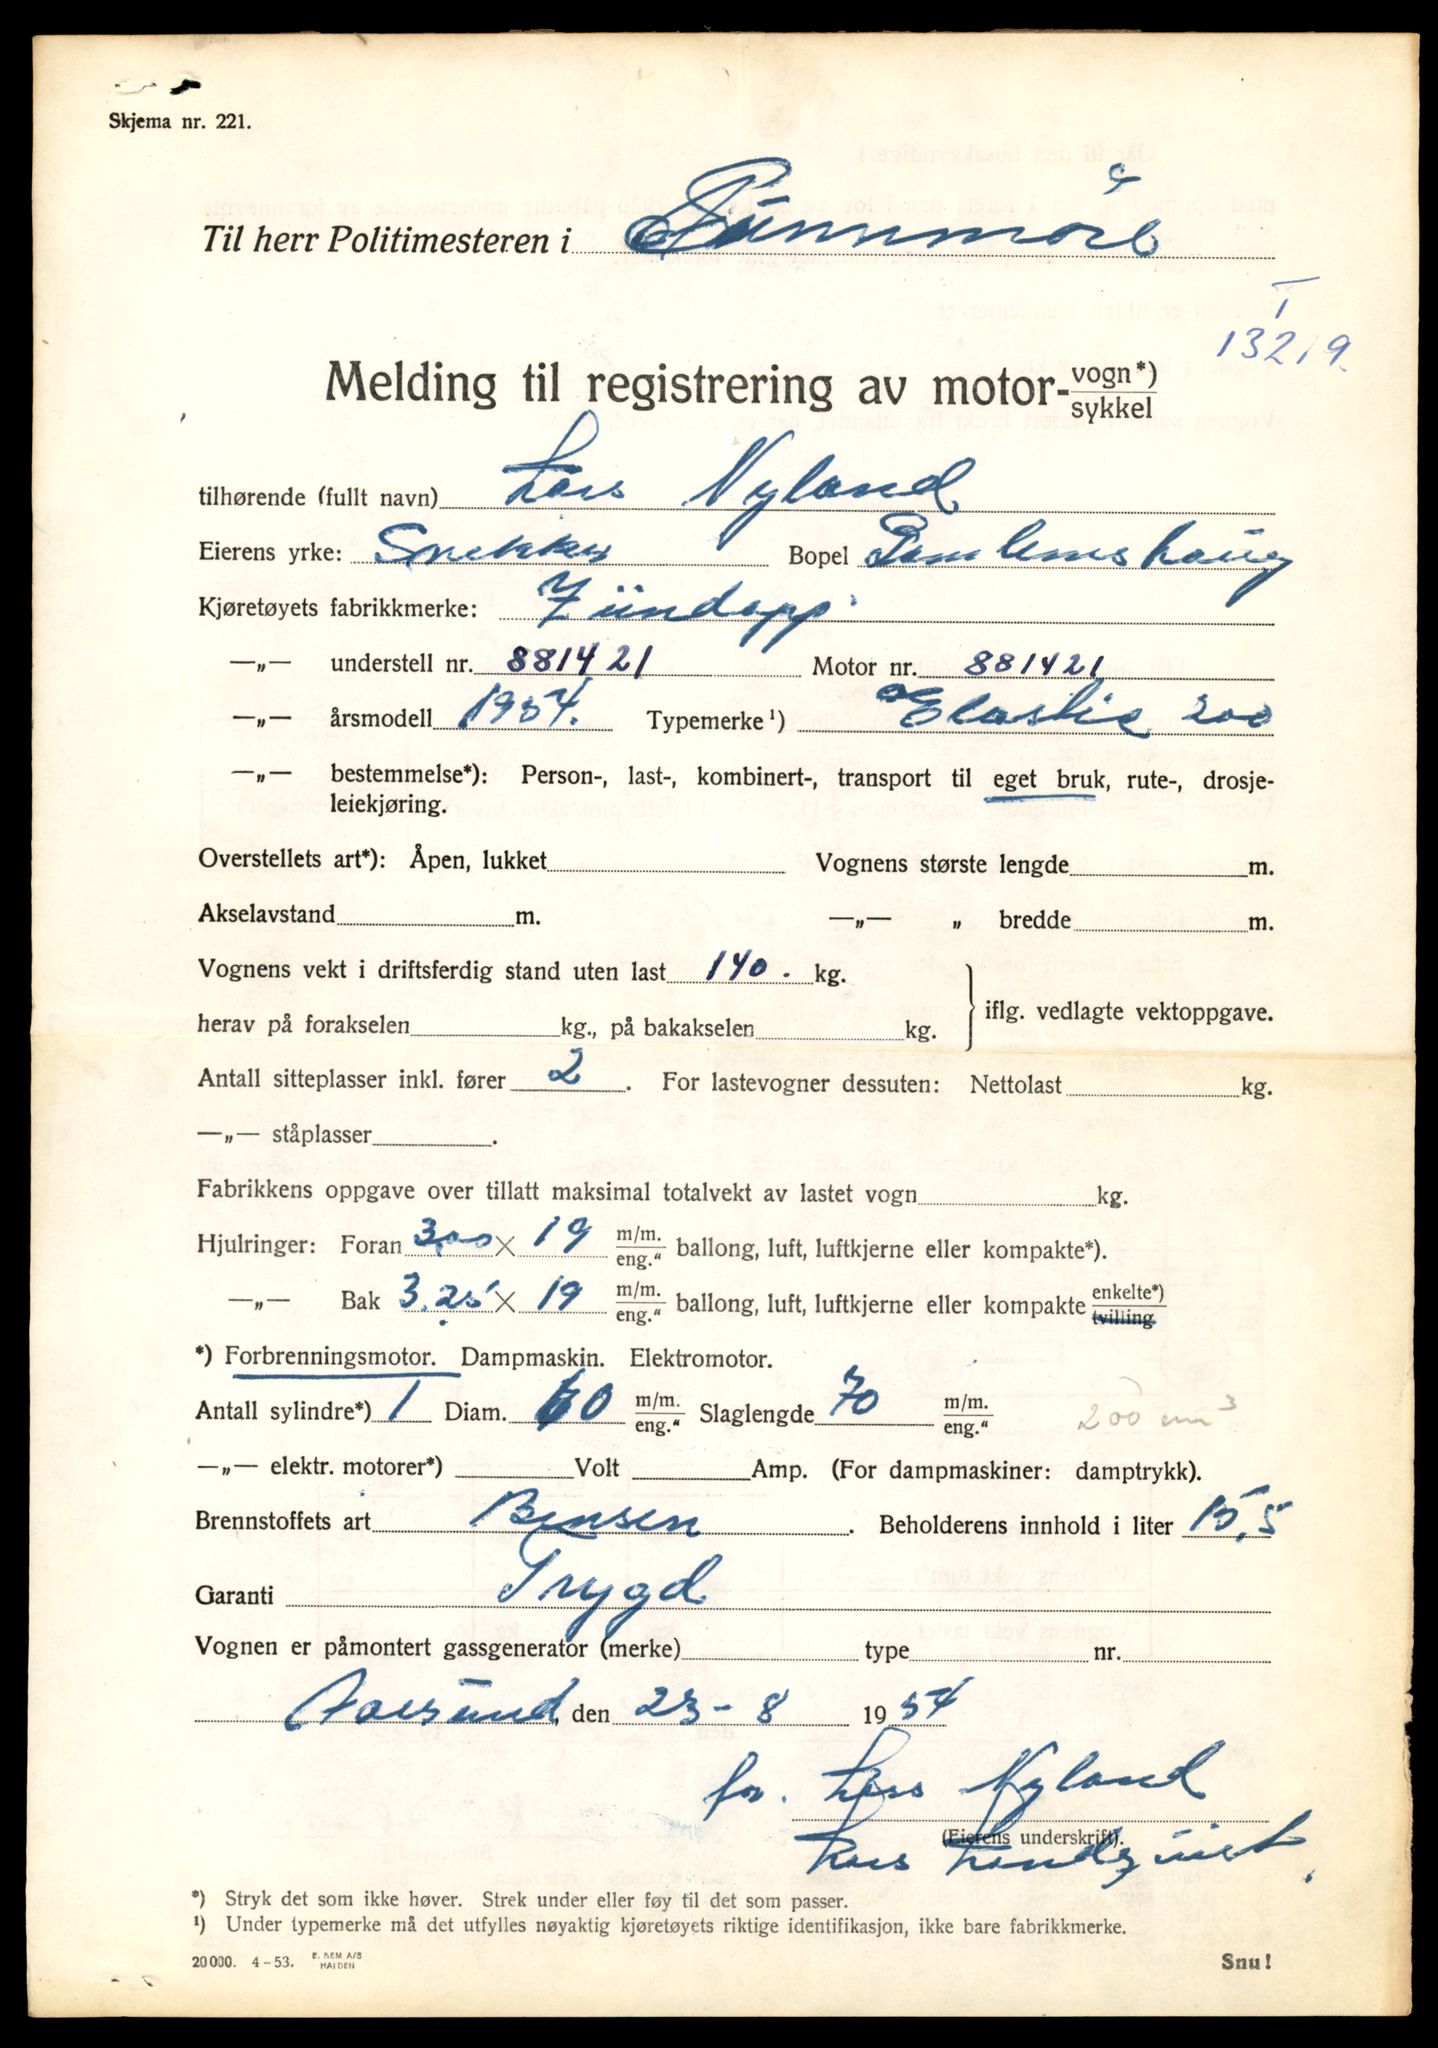 Skjema nr. 221.
Til herr Politimesteren i Sunnmöre
T
13219.
Melding til registrering av motor-vogn*) sykkel
tilhørende (fullt navn) Lars Nyland
Eierens yrke: Snekker Bopel
Kjøretøyets fabrikkmerke: Zündapp
—„— understell nr. 881421 Motor nr. 881421
—„— årsmodell 1954. Typemerke¹) Elastic 200
—„— bestemmelse*): Person-, last-, kombinert-, transport til eget bruk, rute-, drosje-
leiekjøring.
Overstellets art*): Åpen, lukket Vognens største lengde m.
Akselavstand m. —„— „ bredde m.
Vognens vekt i driftsferdig stand uten last 140. kg.
herav på forakselen kg., på bakakselen kg. iflg. vedlagte vektoppgave.
Antall sitteplasser inkl. fører 2. For lastevogner dessuten: Nettolast kg.
—„— ståplasser .
Fabrikkens oppgave over tillatt maksimal totalvekt av lastet vogn kg.
Hjulringer: Foran 3,00 × 19 m/m. eng.“ ballong, luft, luftkjerne eller kompakte*).
—„— Bak 3.25 × 19 m/m. eng.“ ballong, luft, luftkjerne eller kompakte enkelte*) tvilling
*) Forbrenningsmotor. Dampmaskin. Elektromotor.
Antall sylindre*) 1 Diam. 60 m/m. eng.“ Slaglengde 70 m/m. eng.“ 200 cm³
—„— elektr. motorer*) Volt Amp. (For dampmaskiner: damptrykk).
Brennstoffets art Bensen. Beholderens innhold i liter 15,5
Garanti Trygd
Vognen er påmontert gassgenerator (merke) type nr.
Aalesund, den 23-8 1954
for. Lars Nyland
(Eierens underskrift).
Lars Lindqvist.
*) Stryk det som ikke høver. Strek under eller føy til det som passer.
¹) Under typemerke må det utfylles nøyaktig kjøretøyets riktige identifikasjon, ikke bare fabrikkmerke.
20000. 4-53. E. SEM A/S HALDEN Snu!